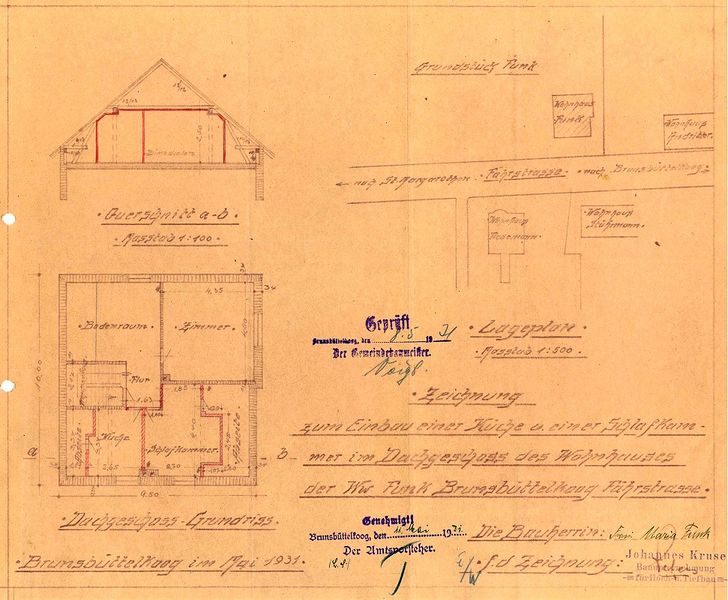 Querschnitt a-b
Masstab 1:100
Bimsdielen
2,50
12/12
12/12
Grundstück Funk
Wohnhaus
Funk
Wohnhaus
← nach St. Margarethen. Fährstrasse. nach Brunsbüttelkoog →
Wohnhaus
Tiedemann
Wohnhaus
Stührmann.
Lageplan
Masstab 1:500
Geprüft
Brunsbüttelkoog, den 9. 5. 1931
Der Gemeindebaumeister.
Voigt.
Bodenraum
Zimmer
4,35
Flur
1,63
Küche
Schlafkammer
Abseite
Abseite
2,65
9,50
10,00
a
b
Dachgeschoss-Grundriss.
Brunsbüttelkoog im Mai 1931.
Zeichnung
zum Einbau einer Küche u. einer Schlafkam-
mer im Dachgeschoss des Wohnhauses
der Ww Funk Brunsbüttelkoog Fährstrasse.
Genehmigt
Brunsbüttelkoog, den Mai 1931.
Der Amtsvorsteher.
Die Bauherrin: Frau Maria Funk
f. d. Zeichnung:
Johannes Kruse
Bauunternehmung
für Hoch- u. Tiefbau